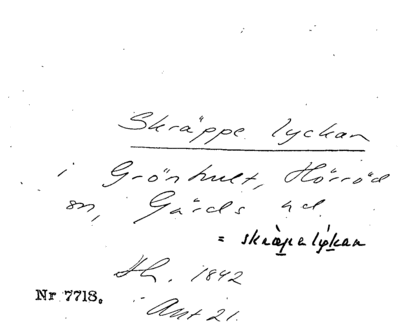 Skräppe lyckan
i Grönhult, Hörröd
sn, Gärds hd.
= skräpelýkan
Hh. 1842
Nr 7718.
Ant 21.